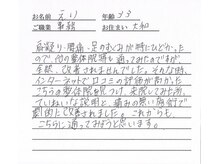 お名前 えり 年齢 33
ご職業 事務 お住まい 大和
肩凝り・腰痛・足のむくみが特にひどかった
ので、他の整体院等も通ってみたのですが
全然、改善されませんでした。そんな時、
インターネットで口コミの評価が高かった
こちらの整体院を見つけ、来院してみた所、
ていねいな説明と痛みの無い施術で
劇的に改善されました。これからも
こちらに通ってみようと思います。